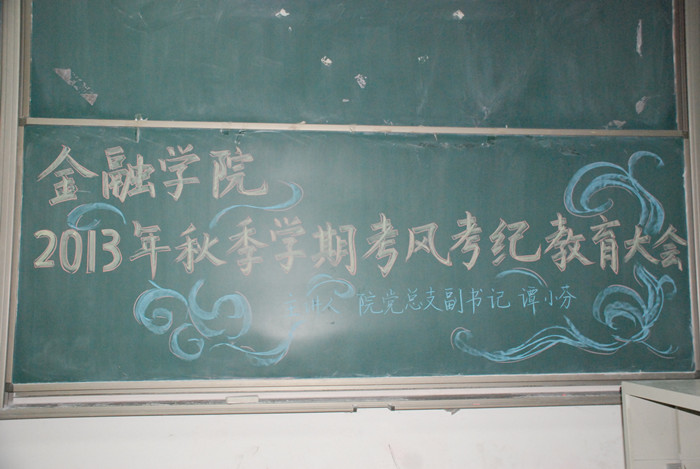 金融学院
2013年秋季学期考风考纪教育大会
人 院党总支副书记 谭小芬